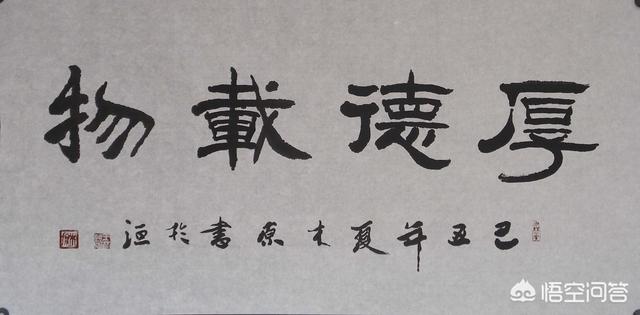 厚德載物
己丑年夏木原書於
悟空问答